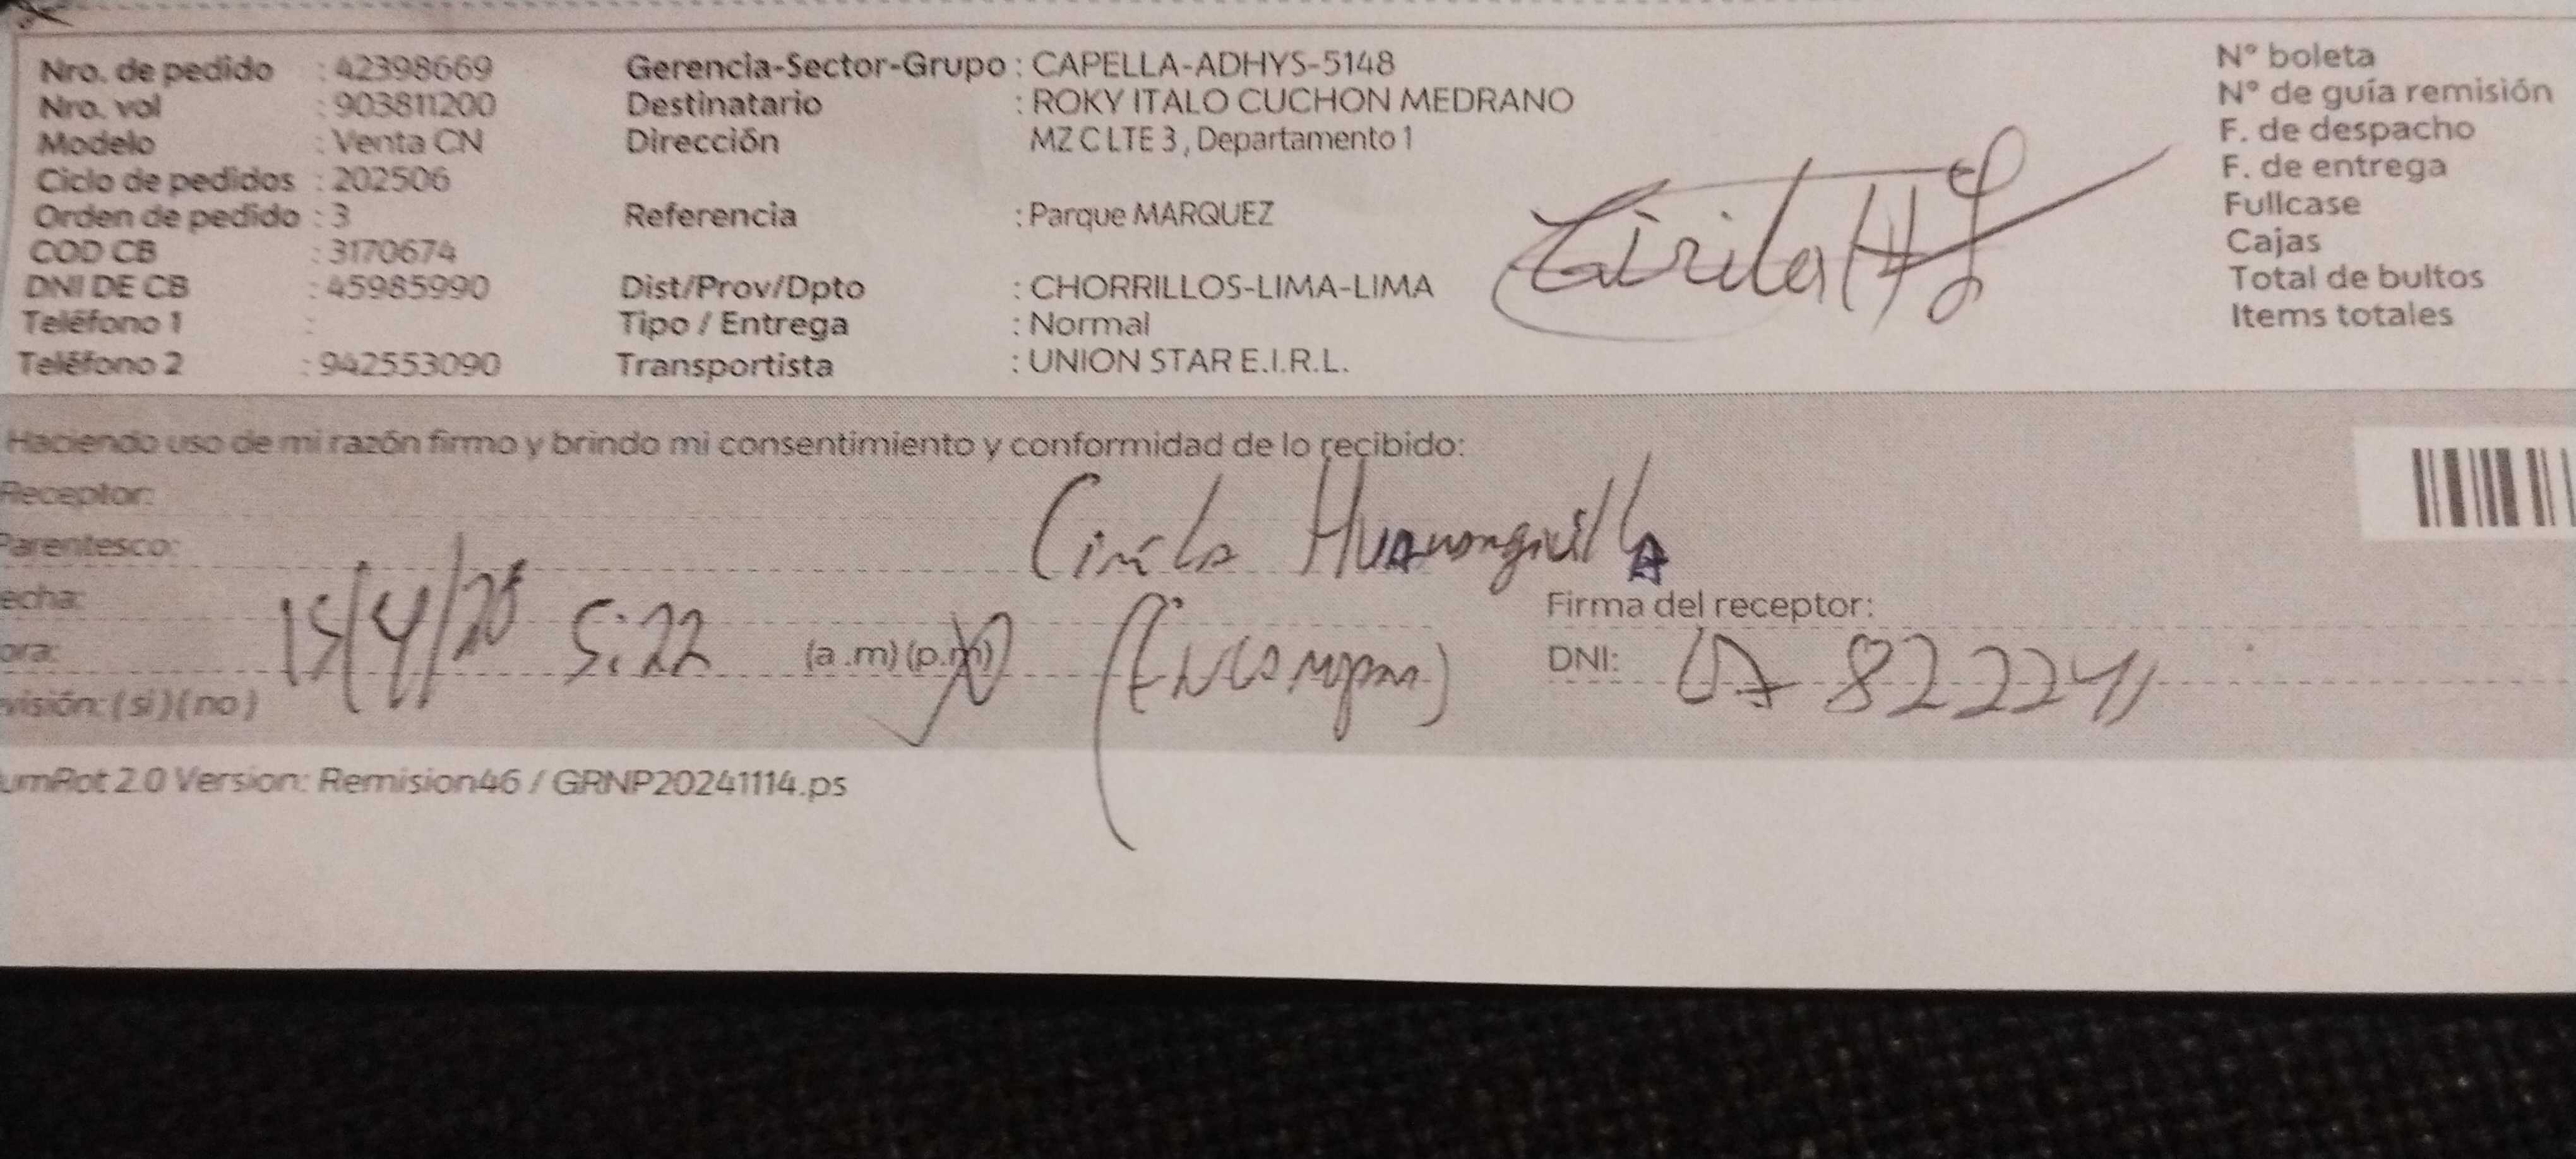 Nro. de pedido : 42398669 Gerencia-Sector-Grupo : CAPELLA-ADHYS-5148 N° boleta
Nro. vol : 903811200 Destinatario : ROKY ITALO CUCHON MEDRANO N° de guía remisión
Modelo : Venta CN Dirección MZ C LTE 3 , Departamento 1 F. de despacho
Ciclo de pedidos : 202506 F. de entrega
Orden de pedido : 3 Referencia : Parque MARQUEZ Fullcase
COD CB : 3170674 Cajas
DNI DE CB : 45985990 Dist/Prov/Dpto : CHORRILLOS-LIMA-LIMA Total de bultos
Teléfono 1 : Tipo / Entrega : Normal Items totales
Teléfono 2 : 942553090 Transportista : UNION STAR E.I.R.L.
Cirila H
Haciendo uso de mi razón firmo y brindo mi consentimiento y conformidad de lo recibido:
Receptor:
Parentesco: Cirila
echa: 15/4/25 Firma del receptor:
ora: 5:22 (a .m) (p.m) DNI:
visión: (si) (no)
umRot 2.0 Version: Remision46 / GRNP20241114.ps